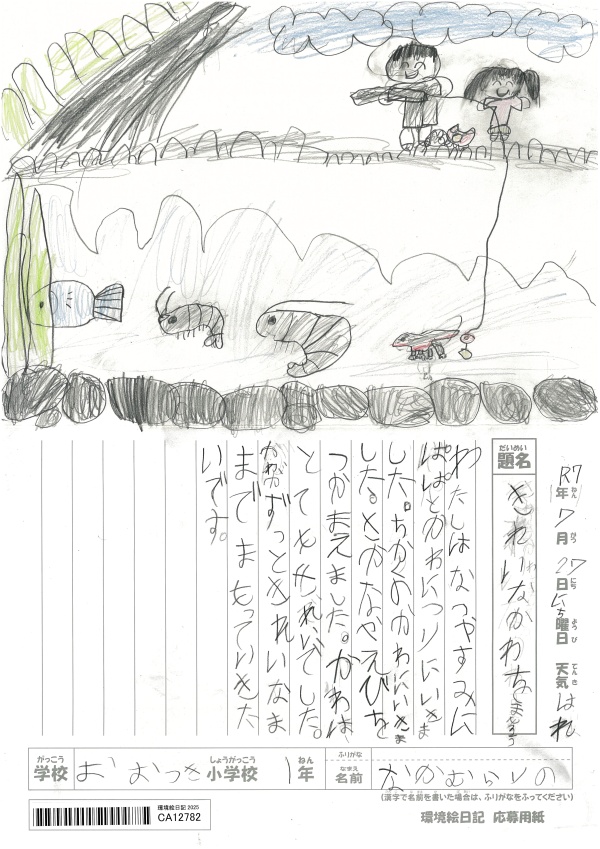 R7年ねん7月がつ27日にちにち曜日ようび 天気てんき はれ
だいめい
題名 きれいなかわをまもろう
わたしはなつやすみに
ぱぱとかわにつりにいきま
した。ちかくのかわにいきま
した。さかなやえびを
つかまえました。かわは
とてもきれいでした。
かわがずっときれいなま
までまもっていきた
いです。
がっこう しょうがっこう ねん ふりがな
学校 おおつき 小学校 1年 なまえ 名前 なかむらりの
(漢字で名前を書いた場合は、ふりがなをふってください)
環境絵日記 2025
CA12782
環境絵日記 応募用紙